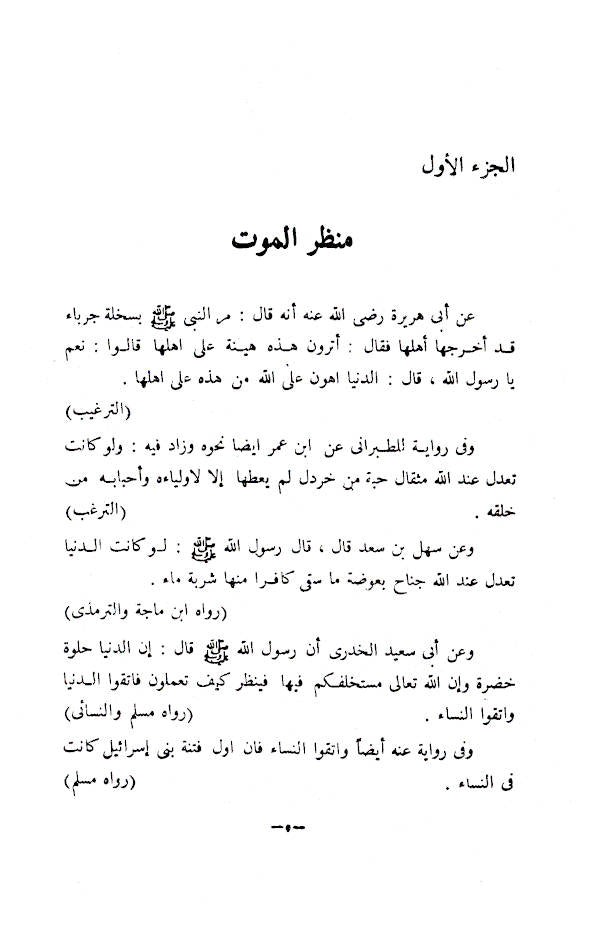 الجزء الأول
منظر الموت
عن أبى هريرة رضى الله عنه أنه قال : مر النبى ﷺ بسخلة جرباء
قد أخرجها أهلها فقال : أترون هذه هينة على اهلها قالوا : نعم
يا رسول الله ، قال : الدنيا اهون على الله من هذه على اهلها .
(الترغيب)
وفى رواية للطبرانى عن ابن عمر ايضا نحوه وزاد فيه : ولو كانت
تعدل عند الله مثقال حبة من خردل لم يعطها إلا لاولياءه وأحبابه من
خلقه . (الترغب)
وعن سهل بن سعد قال ، قال رسول الله ﷺ : لو كانت الدنيا
تعدل عند الله جناح بعوضة ما سقى كافرا منها شربة ماء .
(رواه ابن ماجة والترمذى)
وعن أبى سعيد الخدرى أن رسول الله ﷺ قال : إن الدنيا حلوة
خضرة وإن الله تعالى مستخلفكم فيها فينظر كيف تعملون فاتقوا الدنيا
واتقوا النساء . (رواه مسلم والنسائى)
وفى رواية عنه أيضاً واتقوا النساء فان اول فتنة بنى إسرائيل كانت
فى النساء . (رواه مسلم)